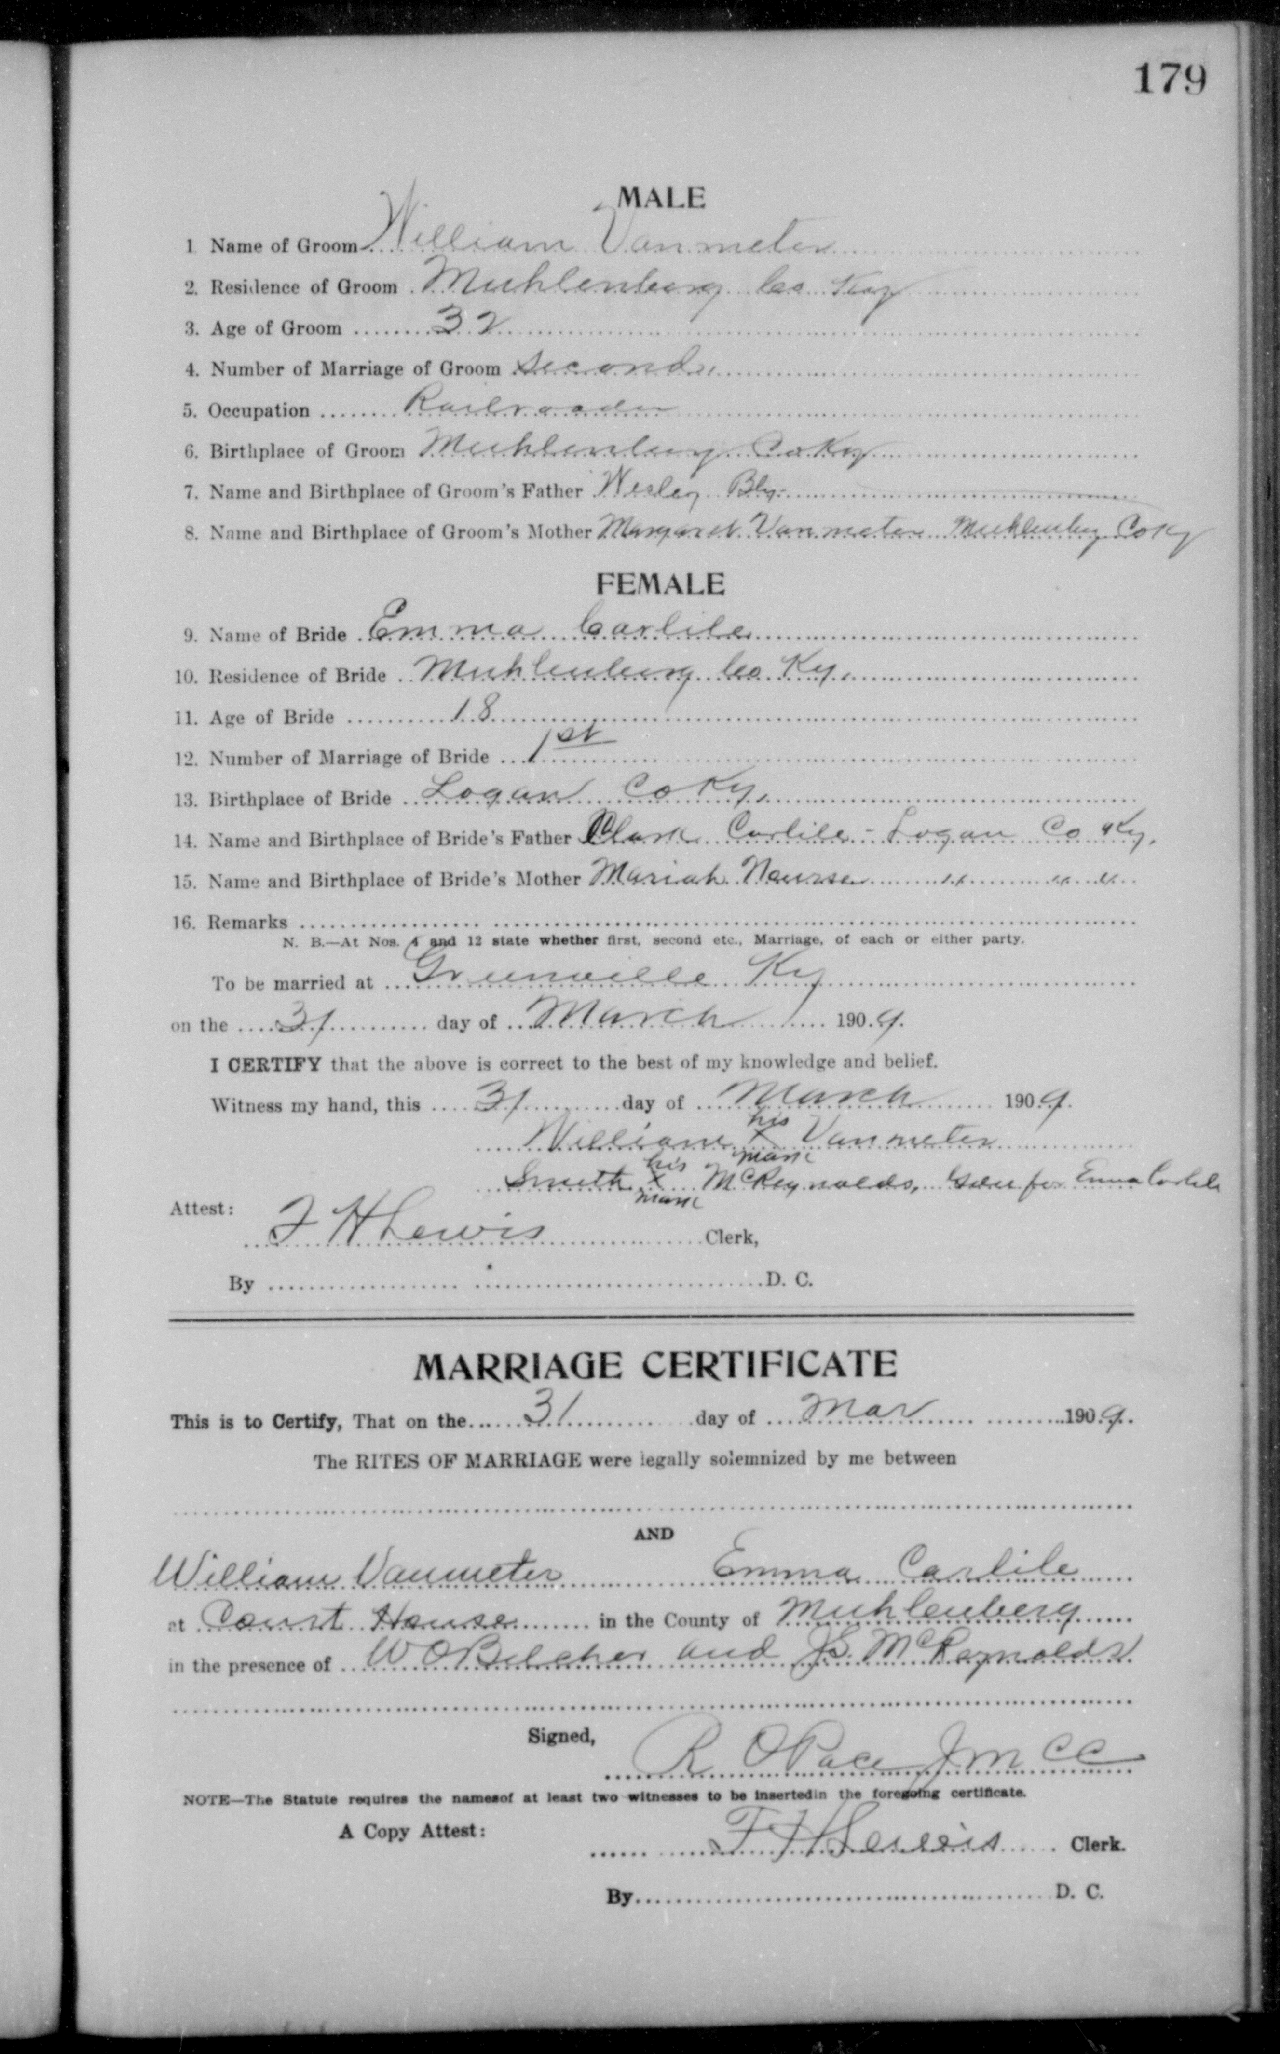 179
MALE
1 Name of Groom William Vanmeter
2. Residence of Groom Muhlenberg Co Ky
3. Age of Groom 32
4. Number of Marriage of Groom Second
5. Occupation Railroader
6. Birthplace of Groom Muhlenberg Co Ky
7. Name and Birthplace of Groom's Father Wesley
8. Name and Birthplace of Groom's Mother Margaret Vanmeter Muhlenberg Co Ky
FEMALE
9. Name of Bride Emma Carlile
10. Residence of Bride Muhlenberg Co Ky.
11. Age of Bride 18
12. Number of Marriage of Bride 1st
13. Birthplace of Bride Logan Co Ky.
14. Name and Birthplace of Bride's Father Clark Carlile - Logan Co Ky.
15. Name and Birthplace of Bride's Mother Mariah Nourse " " "
16. Remarks
N. B.—At Nos. 4 and 12 state whether first, second etc., Marriage, of each or either party.
To be married at Greenville Ky
on the 31 day of March 1909.
I CERTIFY that the above is correct to the best of my knowledge and belief.
Witness my hand, this 31 day of March 1909.
William his X mark Vanmeter
Smith his X mark McReynolds, for Emma Carlile
Attest:
F H Lewis Clerk,
By D. C.
MARRIAGE CERTIFICATE
This is to Certify, That on the 31 day of Mar 1909.
The RITES OF MARRIAGE were legally solemnized by me between
AND
William Vanmeter Emma Carlile
at Court House in the County of Muhlenberg
in the presence of W O Belcher and J S. McReynolds
Signed,
R O Pace J M C C
NOTE—The Statute requires the namesof at least two witnesses to be insertedin the foregoing certificate.
A Copy Attest:
F H Lewis Clerk.
By D. C.